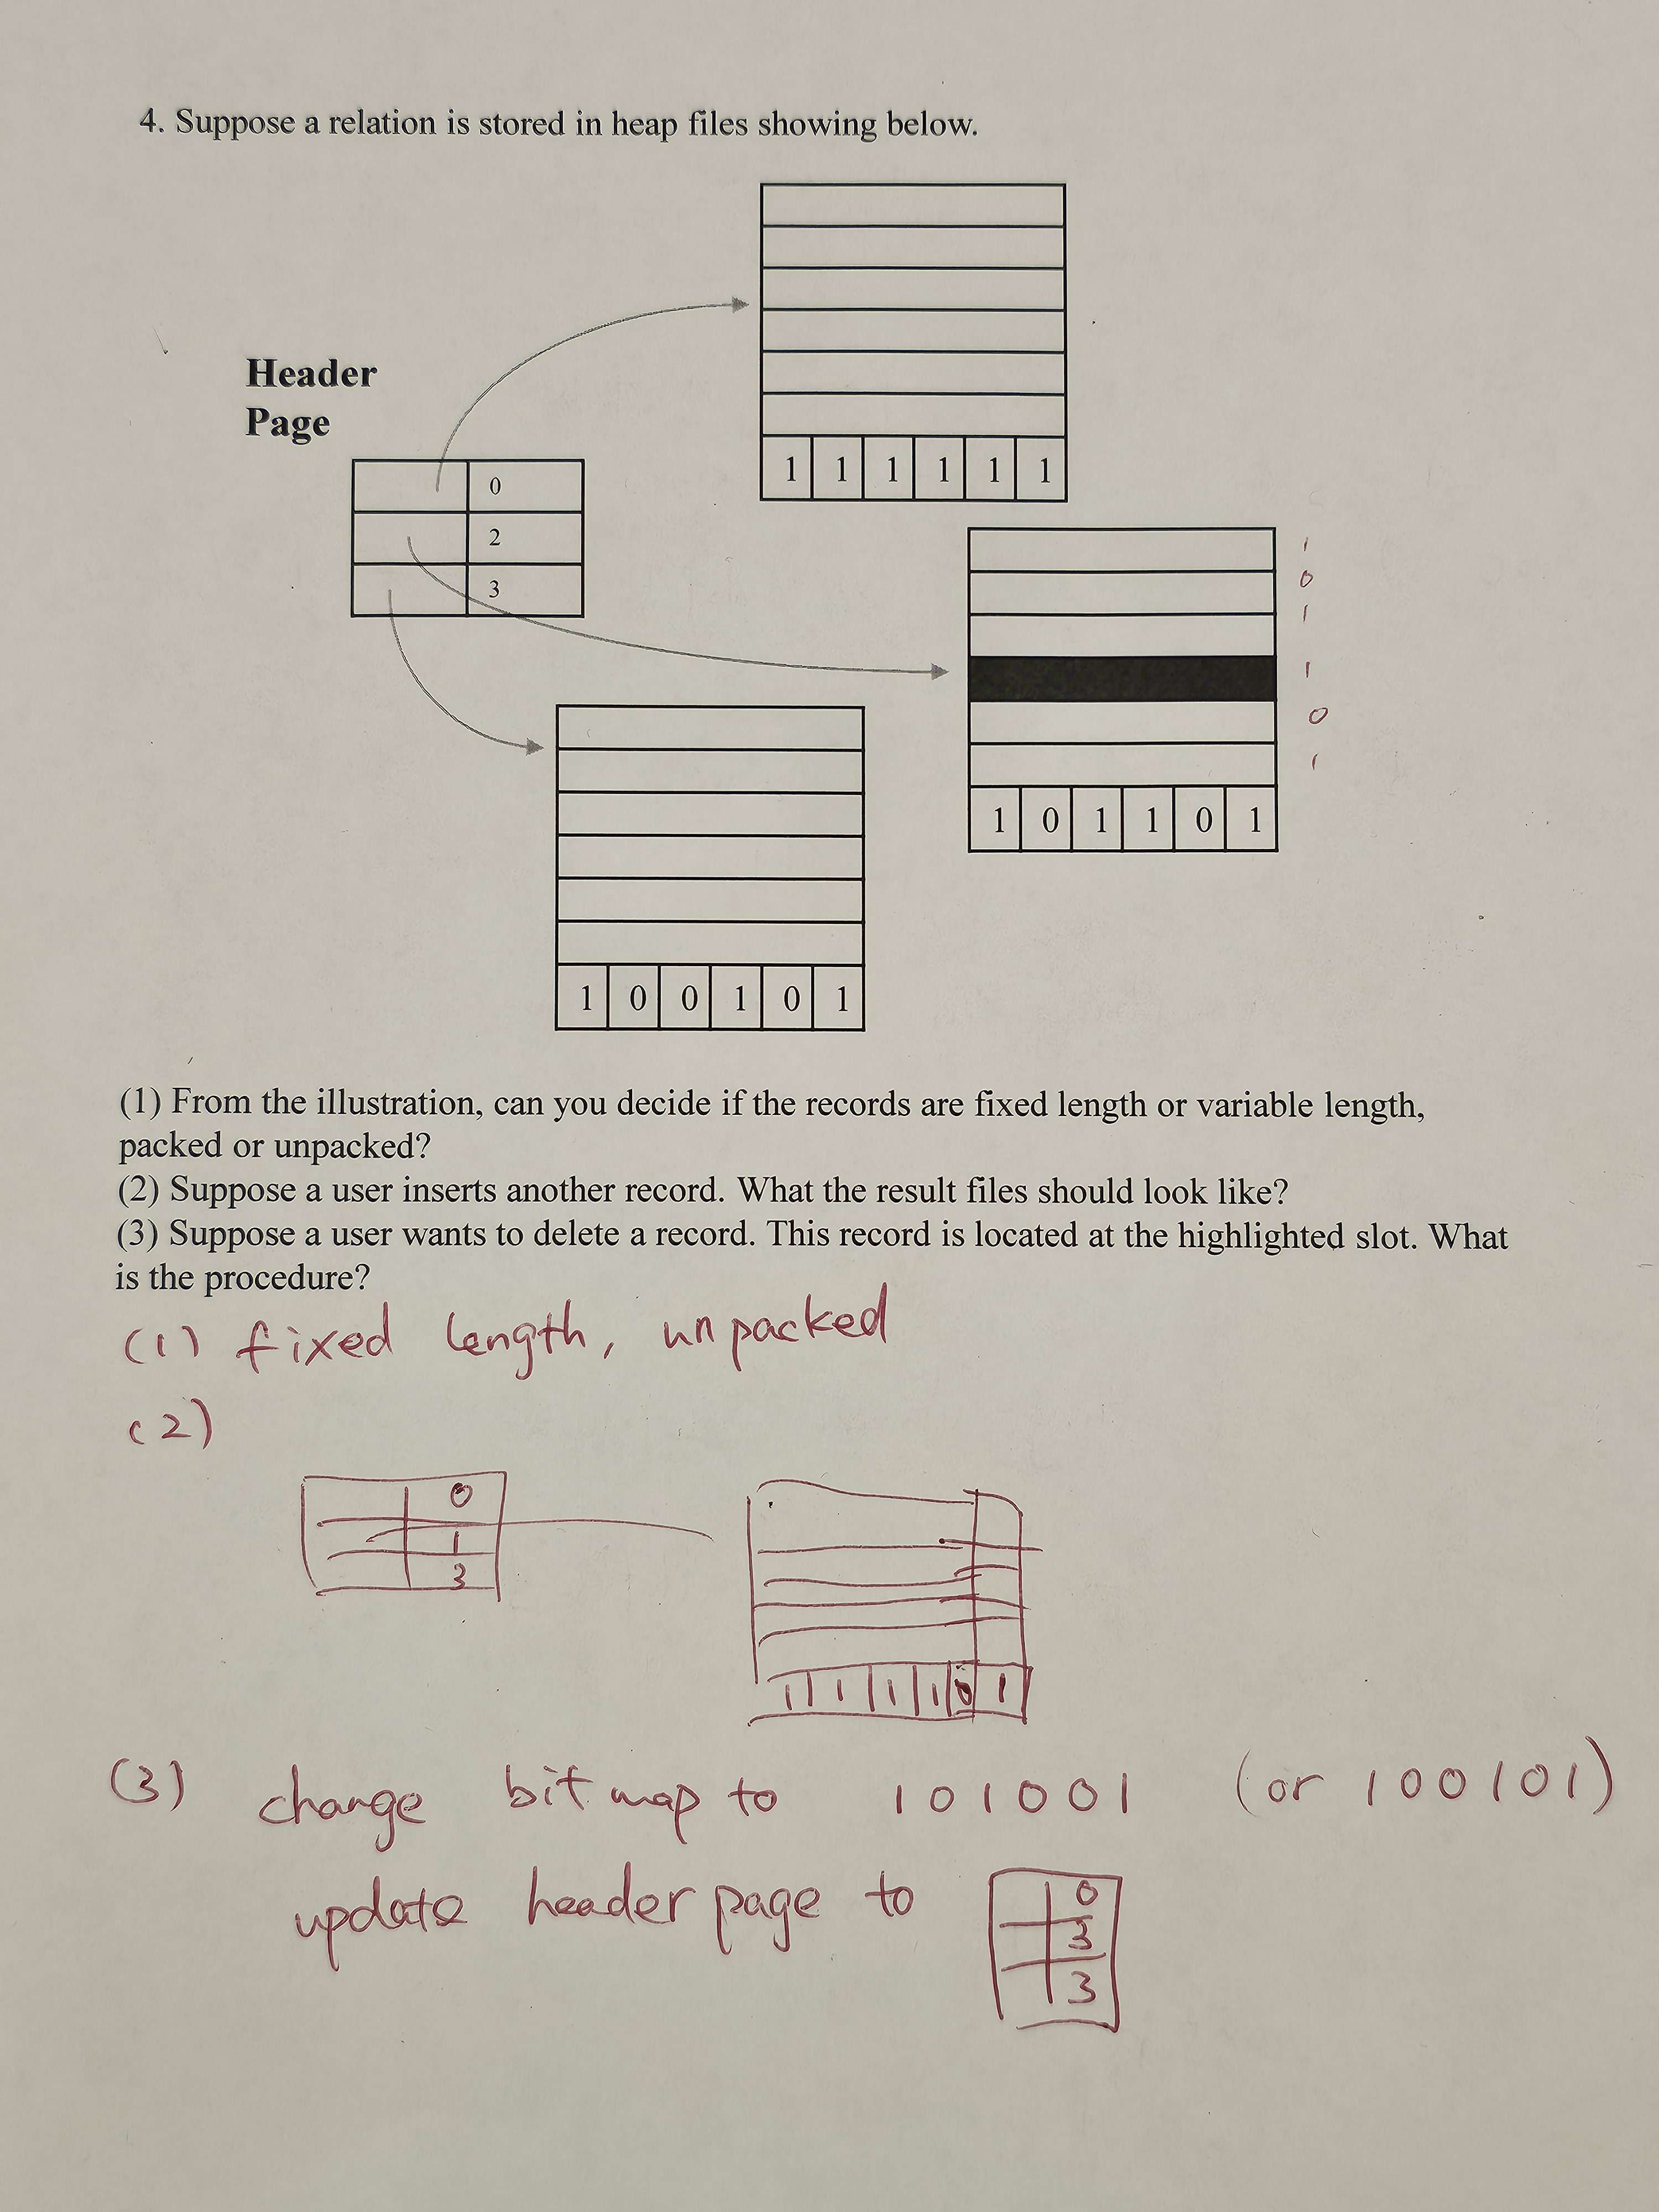 4. Suppose a relation is stored in heap files showing below.
Header
Page
0
2
3
1 1 1 1 1 1
1
0
1
1
0
1
1 0 1 1 0 1
1 0 0 1 0 1
(1) From the illustration, can you decide if the records are fixed length or variable length,
packed or unpacked?
(2) Suppose a user inserts another record. What the result files should look like?
(3) Suppose a user wants to delete a record. This record is located at the highlighted slot. What
is the procedure?
(1) fixed length, unpacked
(2)
0
1
3
1 1 1 1 0 1
(3) change bit map to 101001 (or 100101)
update header page to
0
3
3